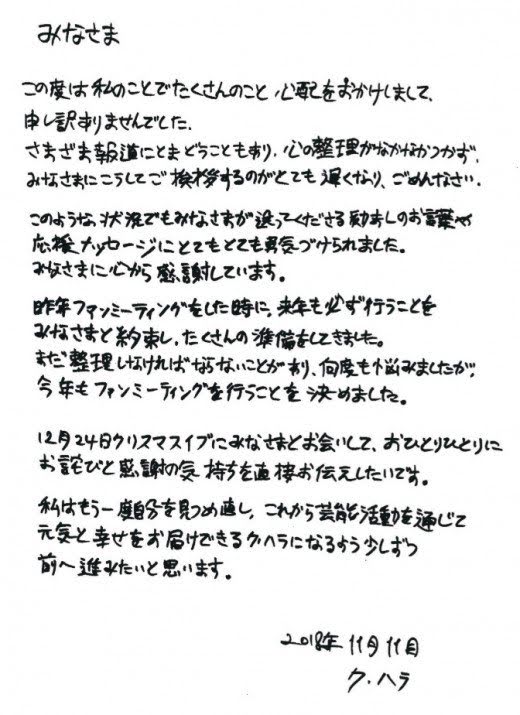 みなさま
この度は私のことでたくさんのこと、心配をおかけしまして、
申し訳ありませんでした。
さまざま報道にとまどうこともあり、心の整理がなかなかつかず、
みなさまにこうしてご挨拶するのがとても遅くなり、ごめんなさい。
このような状況でもみなさまが送ってくださる励ましのお言葉や
応援メッセージにとてもとても勇気づけられました。
みなさまに心から感謝しています。
昨年ファンミーティングをした時に、来年も必ず行うことを
みなさまと約束し、たくさんの準備をしてきました。
まだ整理しなければならないことがあり、何度も悩みましたが、
今年もファンミーティングを行うことを決めました。
12月24日クリスマスイブにみなさまとお会いして、おひとりひとりに
お詫びと感謝の気持ちを直接お伝えしたいです。
私はもう一度自分を見つめ直し、これから芸能活動を通じて
元気と幸せをお届けできるク・ハラになるよう少しずつ
前へ進みたいと思います。
2018年11月11日
ク・ハラ